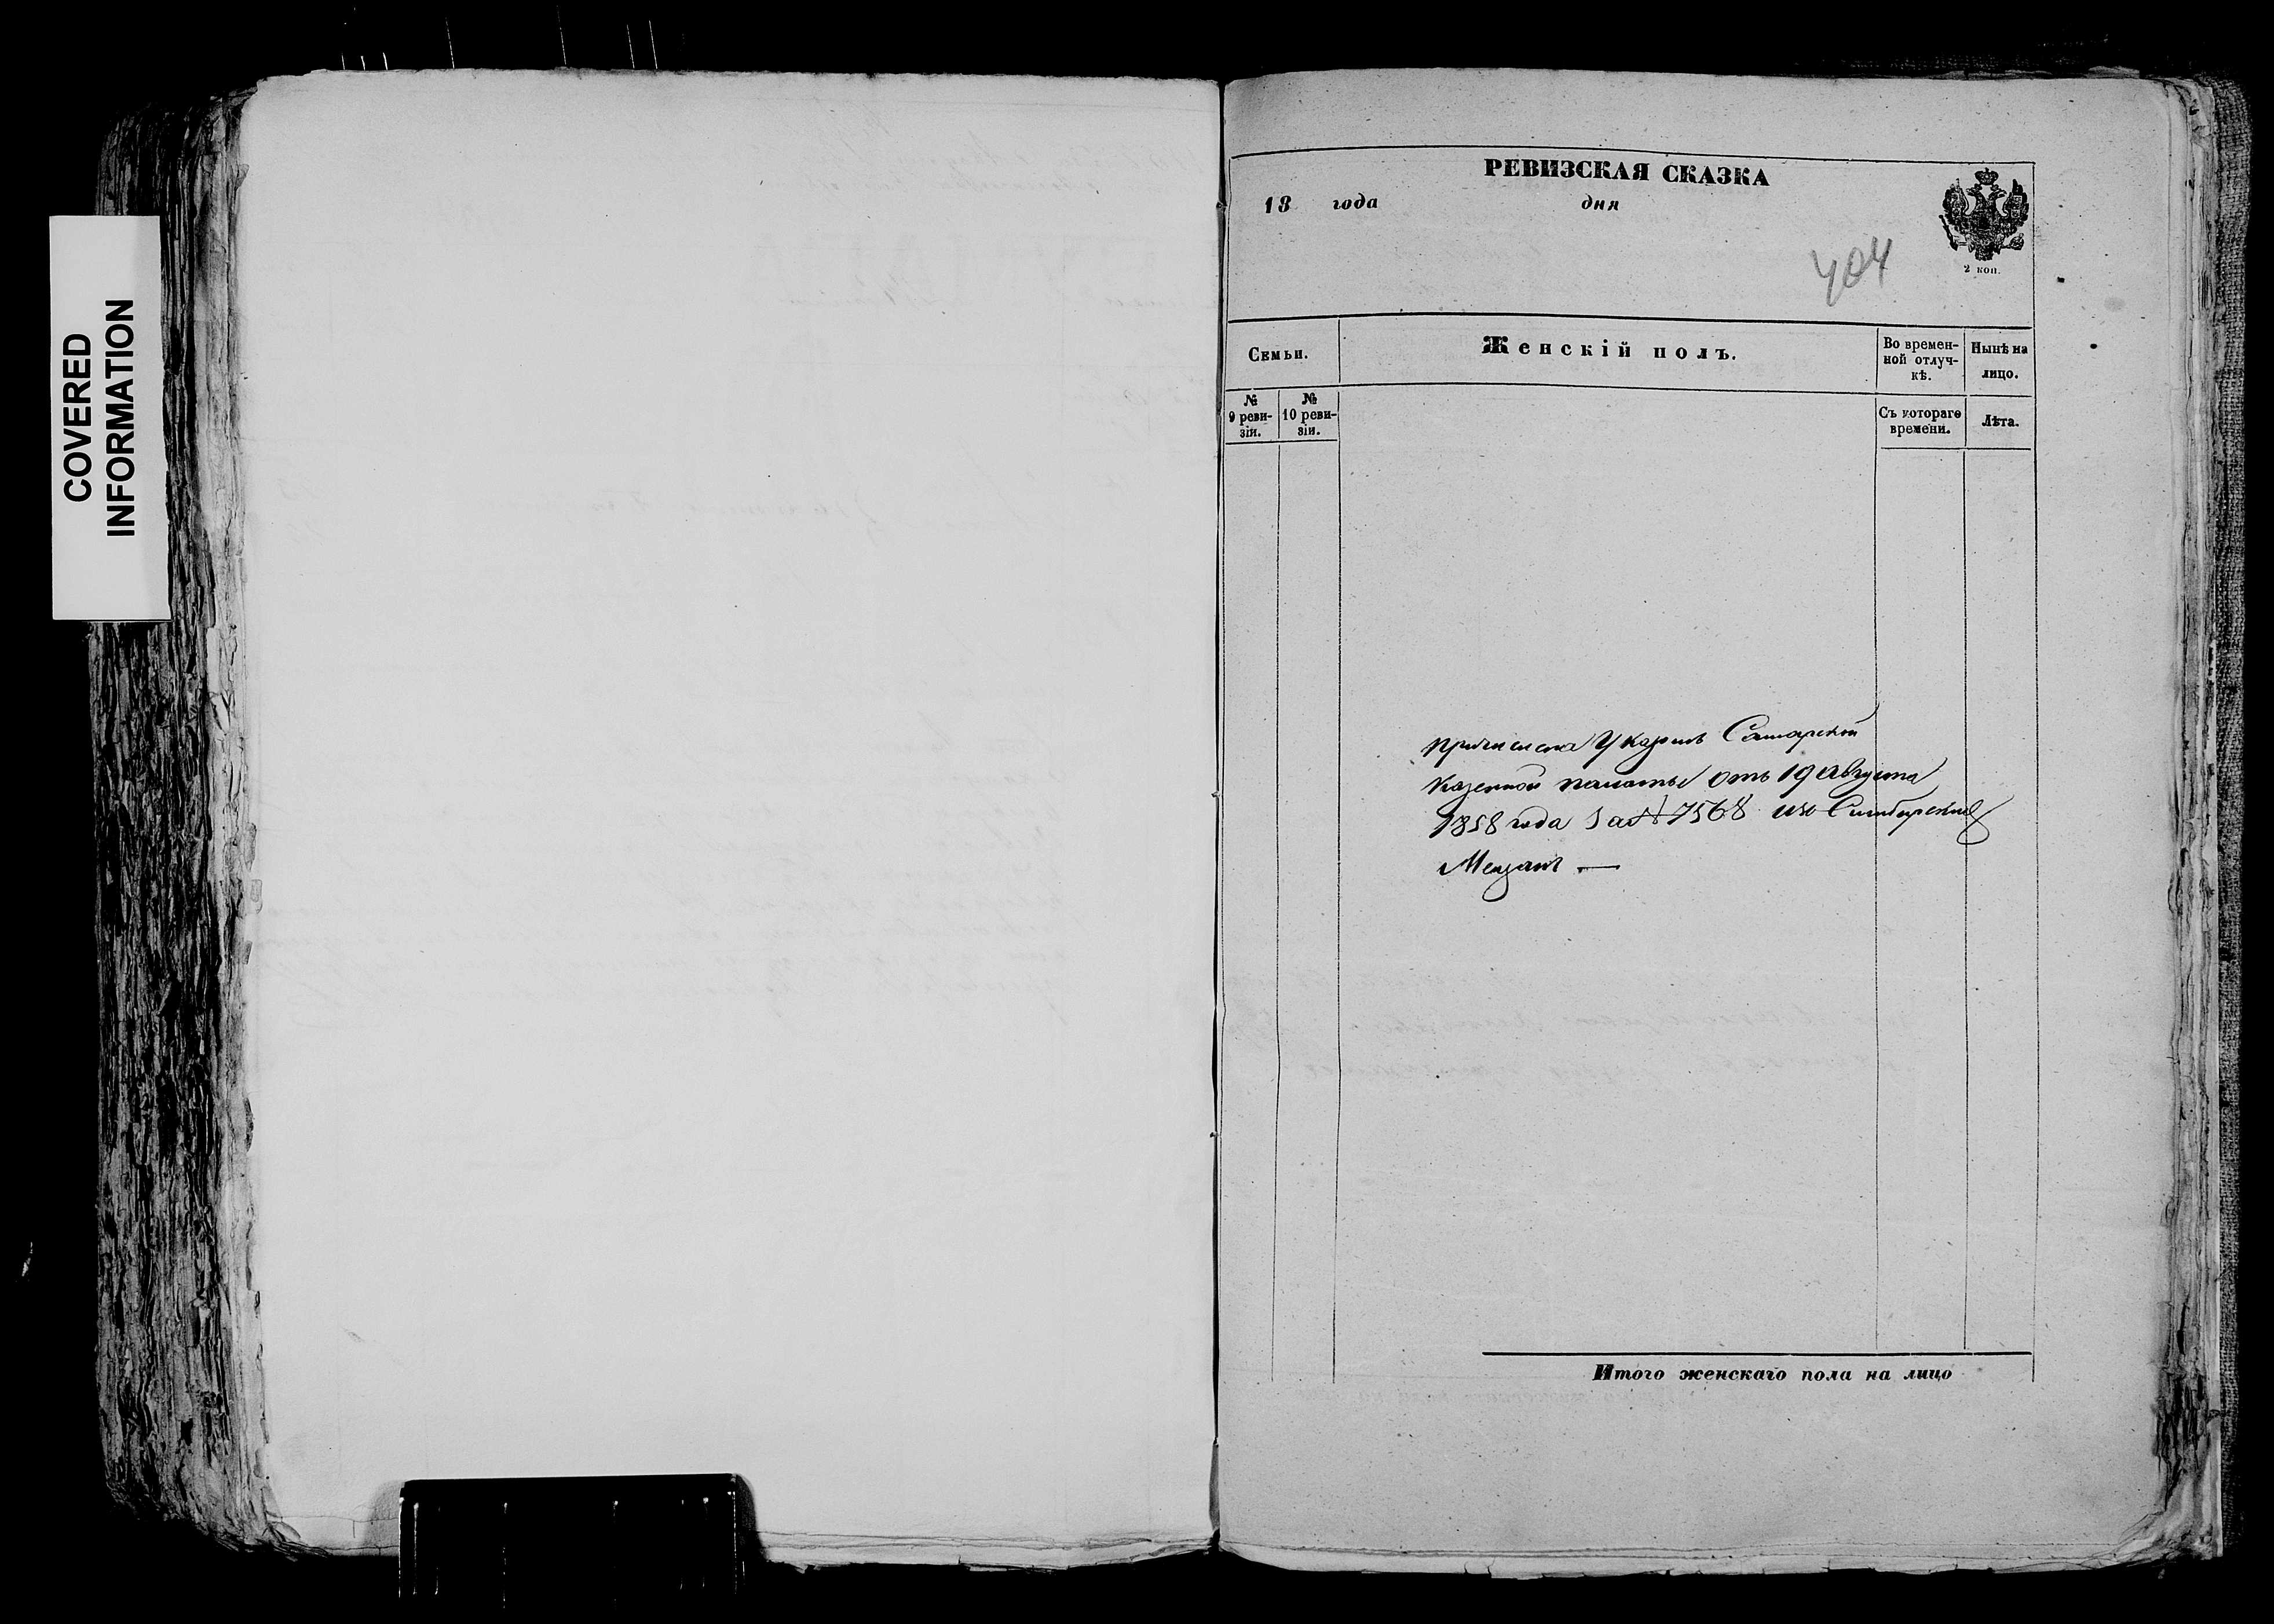 COVERED
INFORMATION
РЕВИЗСКАЯ СКАЗКА
18 года дня
404
2 коп.
Семьи.
Женскій полъ.
Во времен-
ной отлуч-
кѣ.
Нынѣ на
лицо.
№
9 реви-
зіи.
№
10 реви-
зіи.
Съ котораго
времени.
Лѣта.
причислена Указомъ Самарской
Казенной палаты отъ 19 Августа
1858 года за № 7568 изъ Симбирскихъ
Мещанъ —
Итого женскаго пола на лицо